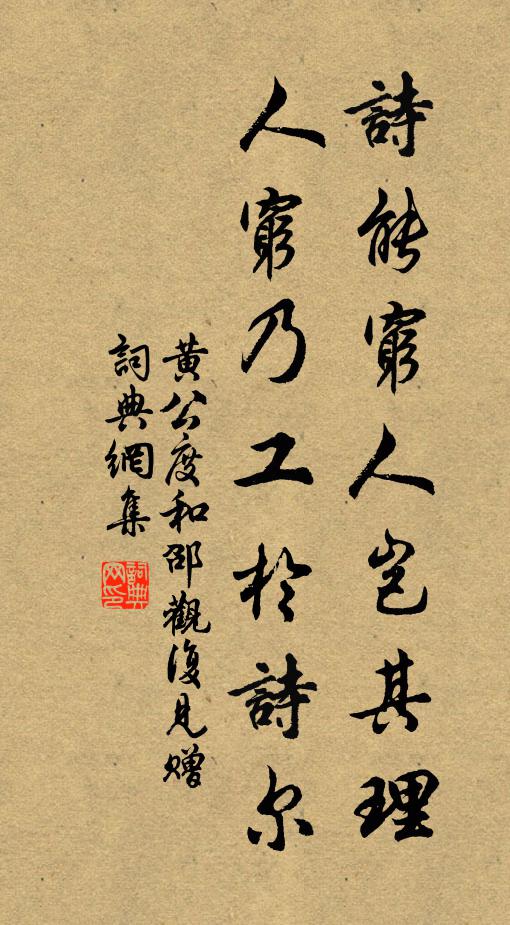 詩能窮人豈其理
人窮乃工於詩尔
黃公度和邵觀復見贈
詞典網集
詞典网印